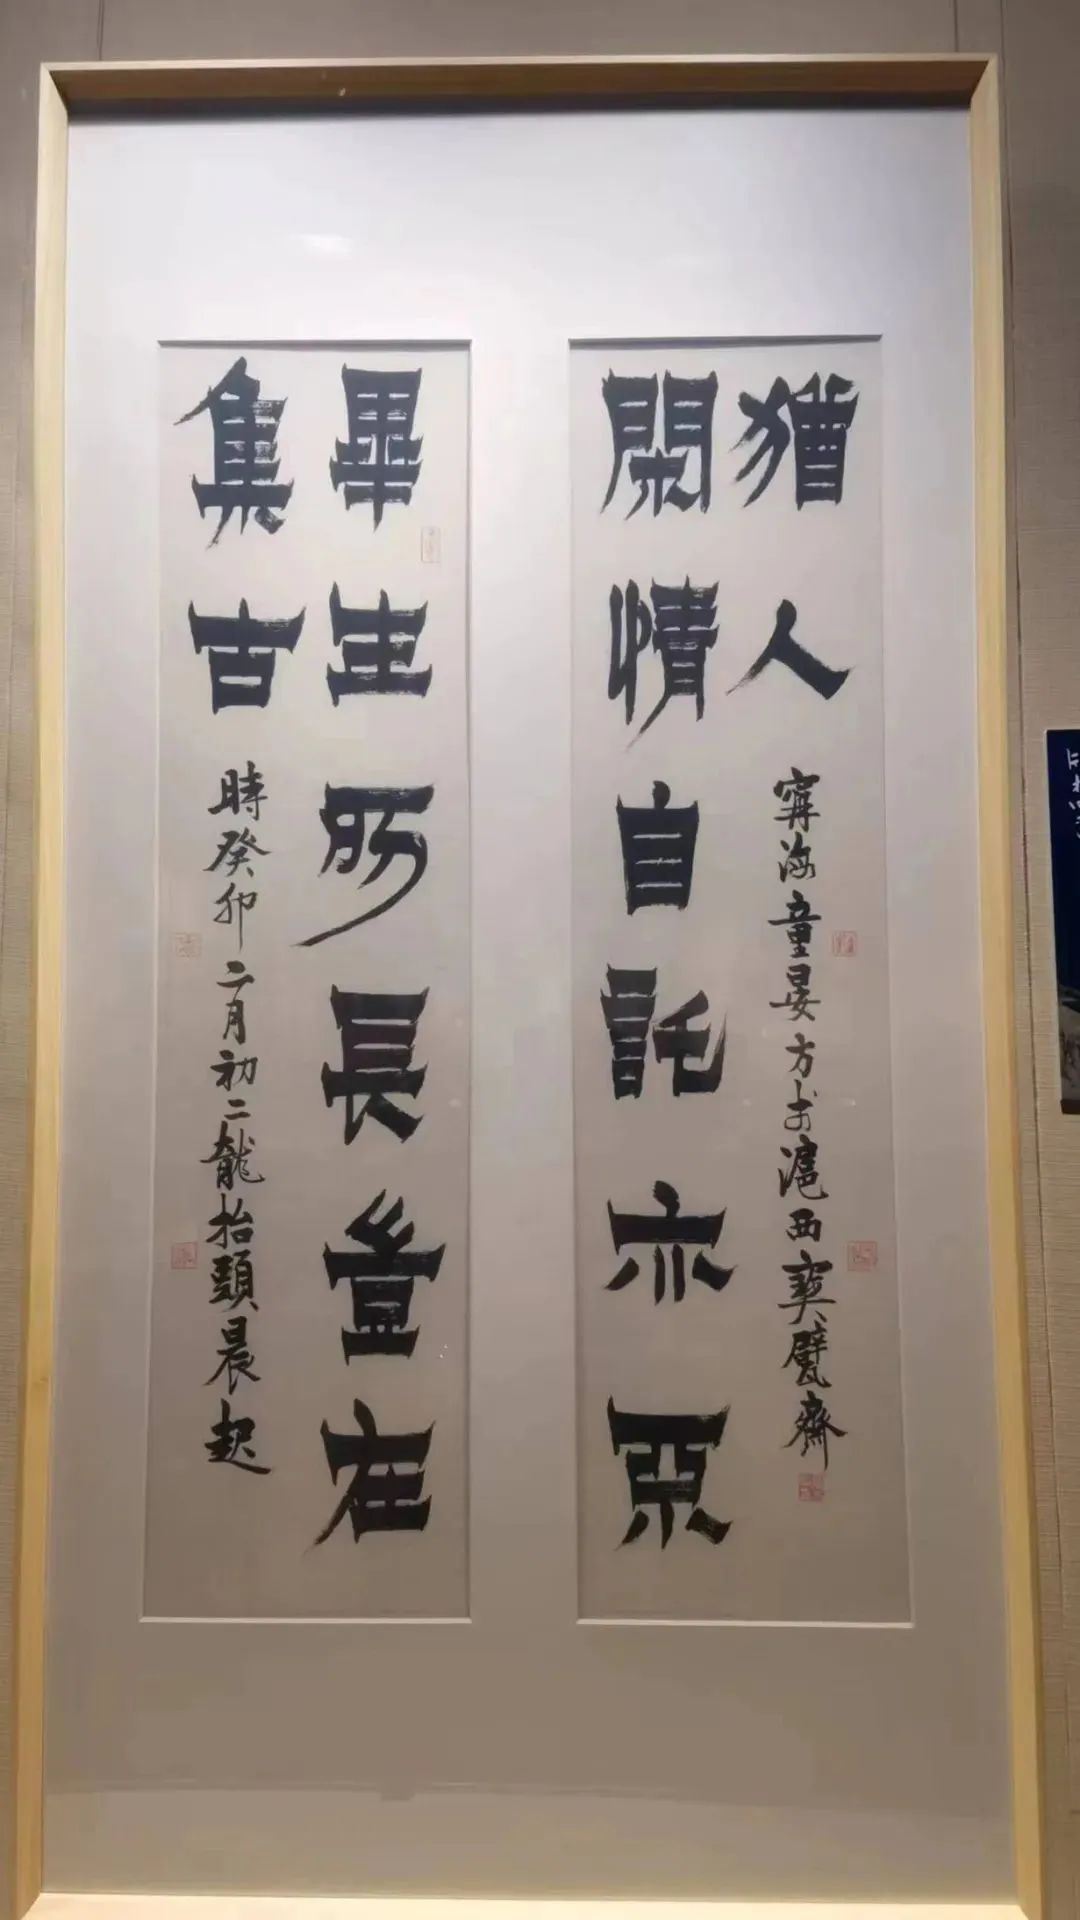 畢生所長豈在
集古
時癸卯二月初二龍抬頭晨起
閑情自託亦不
猶人
寧海童晏方於滬西寶甓齋